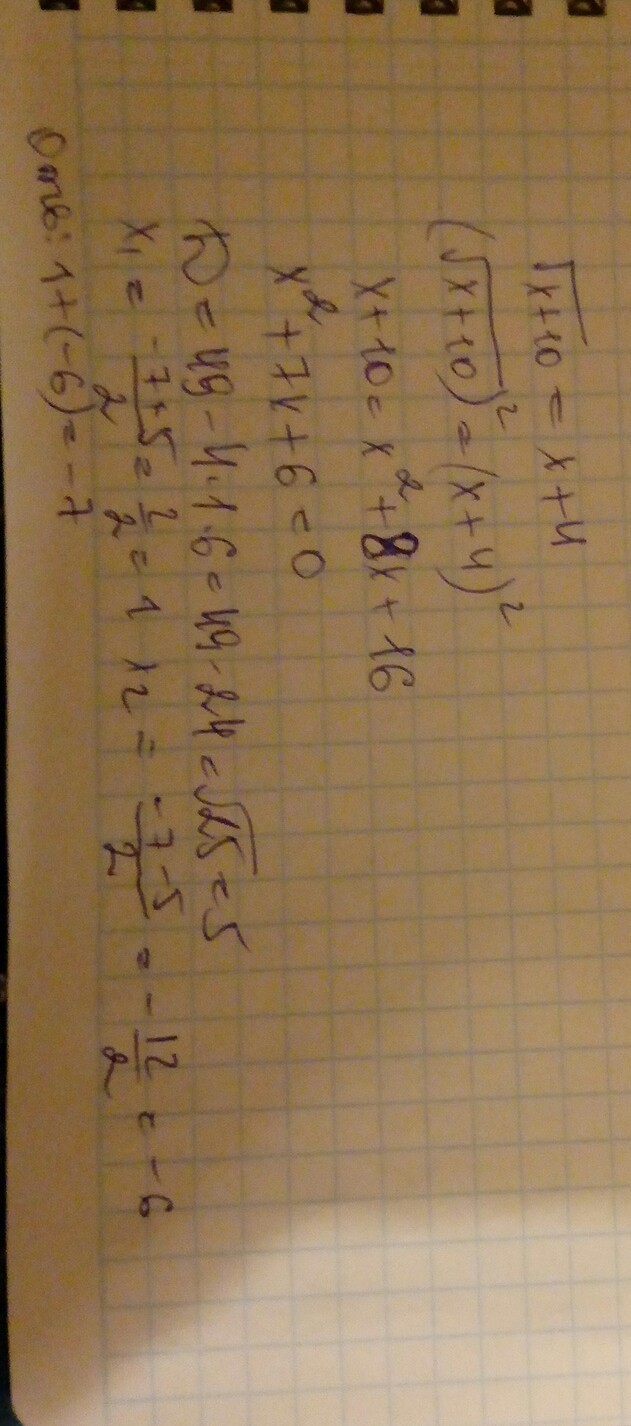 √x+10 = x+4
(√x+10)² = (x+4)²
x+10 = x²+8x+16
x²+7x+6=0
D = 49-4·1·6 = 49-24 = √25 = 5
x₁ = -7+5/2 = 2/2 = 1 x₂ = -7-5/2 = -12/2 = -6
Отв: 1+(-6) = -7